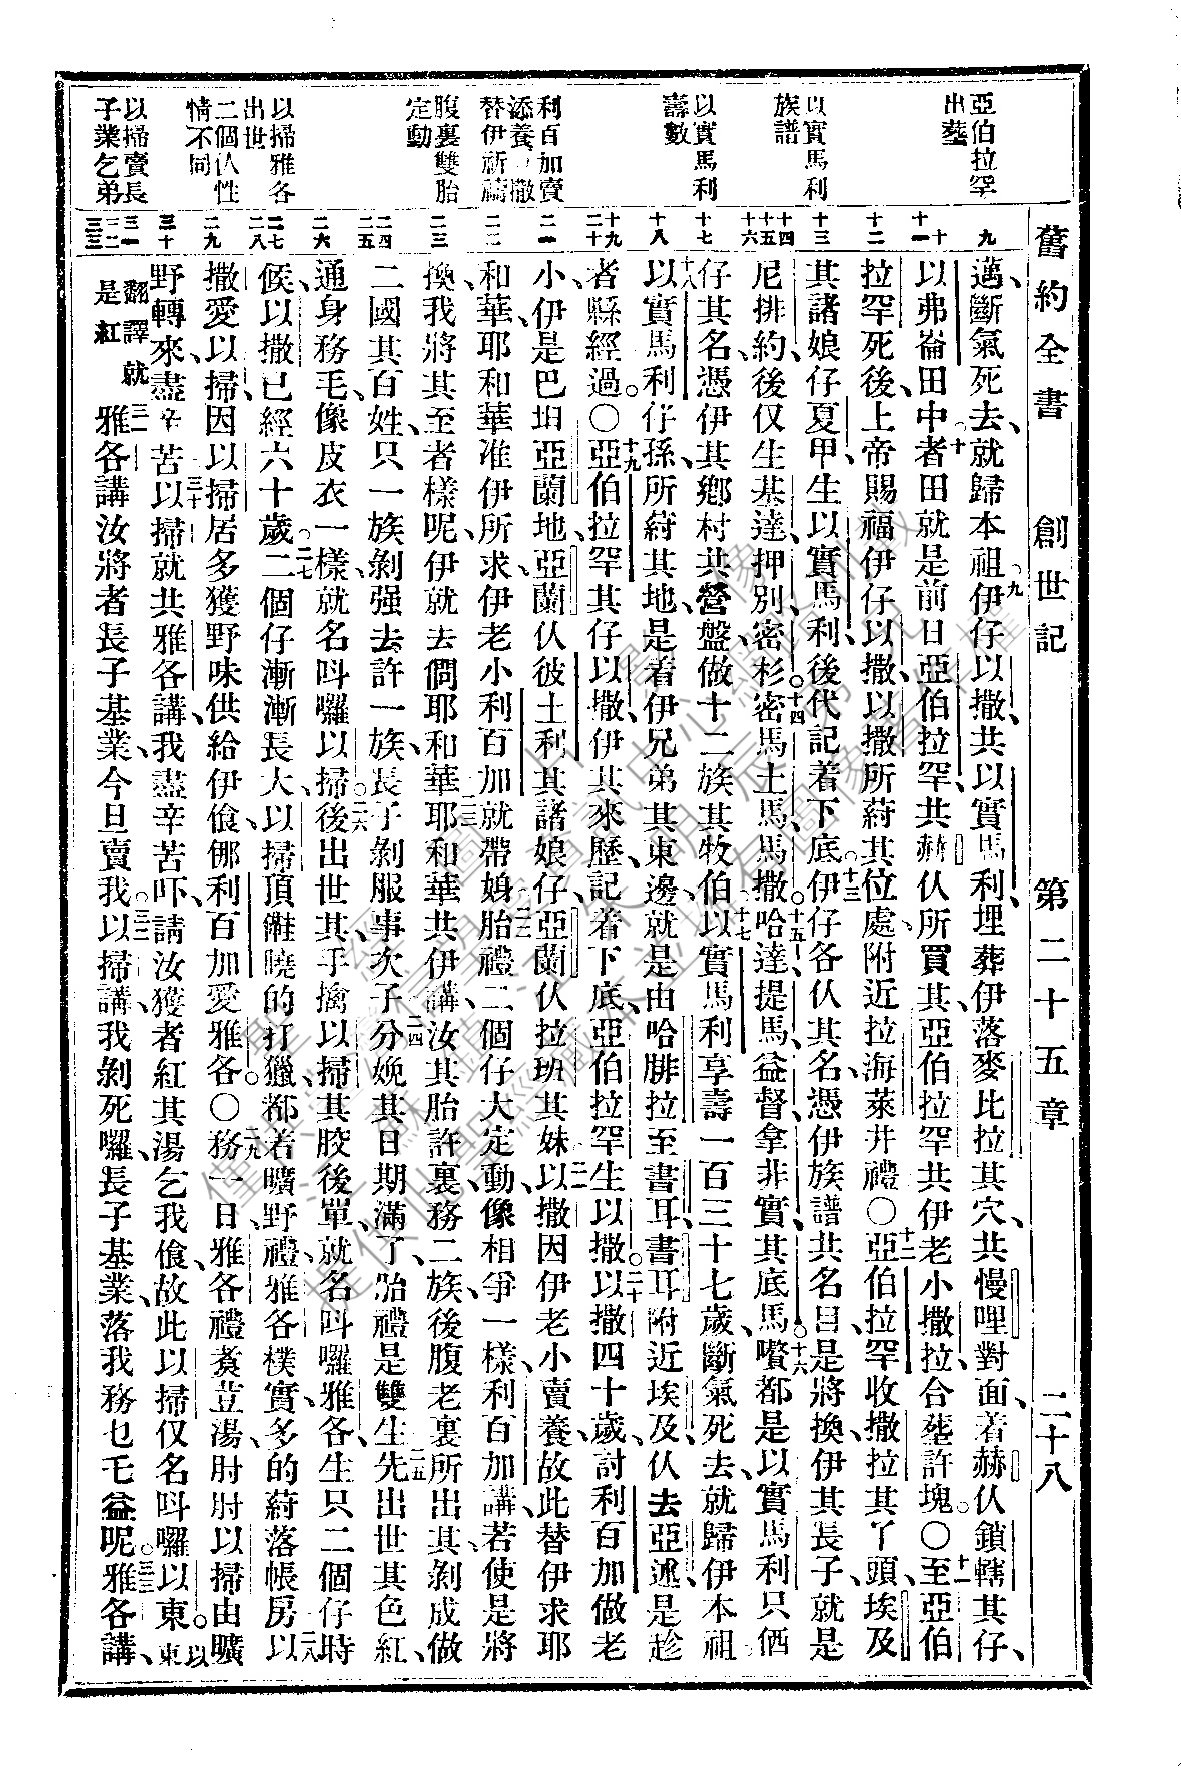 舊約全書 創世記 第二十五章 二十八
亞伯拉罕
出塟
以實馬利
族譜
以實馬利
壽數
利百加賣
添養以撒
替伊祈禱
腹裏雙胎
定動
以掃雅各
出世
二個仈性
情不同
以掃賣長
子業乞弟
九
十
十一
十二
十三
十四
十五
十六
十七
十八
十九
二十
二一
二二
二三
二四
二五
二六
二七
二八
二九
三十
三一
三二
三三
邁斷氣死去、就歸本祖。九伊仔以撒、共以實馬利、埋葬伊落麥比拉其穴、共慢哩對面、着赫仈鎖轄其仔、
以弗崙田中、十者田就是前日亞伯拉罕共赫仈所買其、亞伯拉罕共伊老小撒拉、合塟許塊。〇十一至亞伯
拉罕死後、上帝賜福伊仔以撒、以撒所䓁其位處、附近拉海萊井禮。〇十二亞伯拉罕收撒拉其丫頭埃及
其諸娘仔夏甲、生以實馬利、後代記着下底。十三伊仔各仈其名、憑伊族譜共名目、是將換伊其長子就是
尼排約、後仅生基達、押別、密杉、十四密馬土馬、馬撒、十五哈達、提馬、益督、拿非實、其底馬。十六嚽都是以實馬利只価
仔其名、憑伊其鄉村共營盤、做十二族其牧伯。十七以實馬利享壽一百三十七歲、斷氣死去、就歸伊本祖
十八以實馬利仔孫、所䓁其地、是着伊兄弟其東邊、就是由哈腓拉至書耳、書耳附近埃及、仈去亞述、是趁
者縣經過。〇十九亞伯拉罕其仔以撒、伊其來歷、記着下底、亞伯拉罕生以撒。二十以撒四十歲、討利百加做老
小、伊是巴坦亞蘭地、亞蘭仈彼土利其諸娘仔、亞蘭仈拉班其妹。二一以撒因伊老小賣養、故此替伊求耶
和華、耶和華准伊所求、伊老小利百加就帶娚胎禮。二二二個仔大定動、像相爭一樣、利百加講、若使是將
換、我將其至者樣呢、伊就去問耶和華。二三耶和華共伊講、汝其胎許裏務二族、後腹老裏所出其、剝成做
二國其百姓、只一族剝强去許一族、長子剝服事次子。二四分娩其日期滿了、胎禮是雙生。二五先出世其色紅、
通身務毛、像皮衣一樣、就名呌囉以掃。二六後出世其、手擒以掃其膠後單、就名呌囉雅各、生只二個仔時
候、以撒已經六十歲。二七二個仔漸漸長大、以掃頂𨿅曉的打獵、都着曠野禮、雅各樸實、多的䓁落帳房。二八以
撒愛以掃、因以掃居多獲野味供給伊飱、𠋥利百加愛雅各。〇二九務一日、雅各禮煮荳湯、肘肘以掃由曠
野轉來、盡辛苦。三十以掃就共雅各講、我盡辛苦吓、請汝獲者紅其湯乞我飱、故此以掃仅名呌囉以東。以東
翻譯就是紅 三一雅各講、汝將者長子基業、今旦賣我。三二以掃講、我剝死囉、長子基業落我務乜乇益呢。三三雅各講、